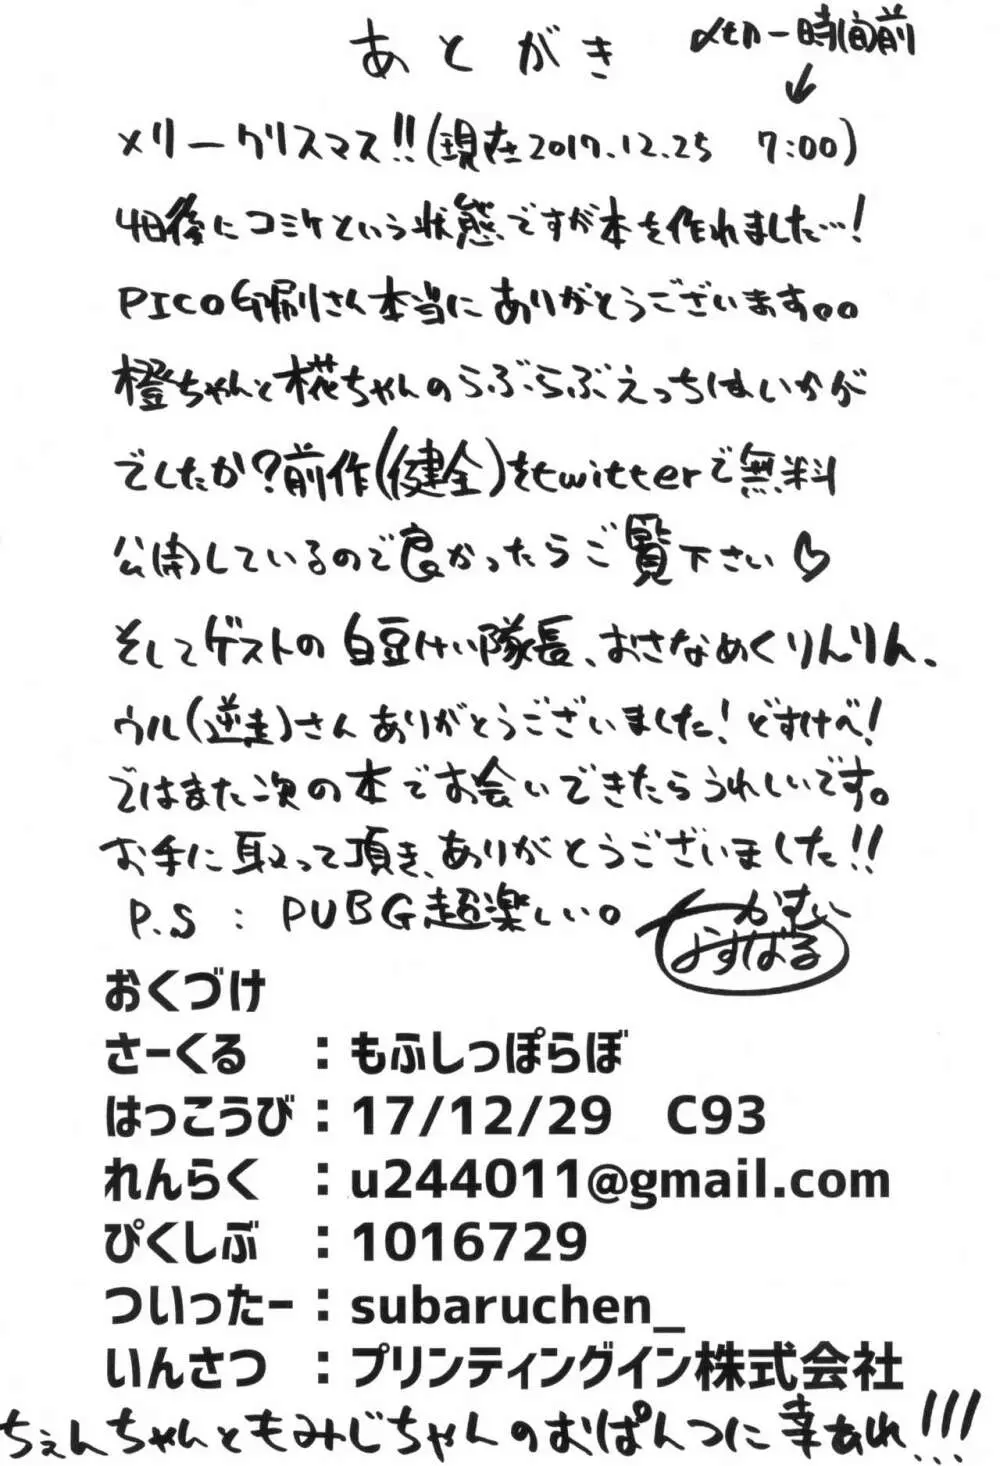 あとがき
〆切一時間前
↓
メリークリスマス!!(現在2017.12.25 7:00)
4日後にコミケという状態ですが本を作れました…!
PICO印刷さん本当にありがとうございます。。
橙ちゃんと椛ちゃんのらぶらぶえっちはいかが
でしたか?前作(健全)をtwitterで無料
公開しているので良かったらご覧下さい♡
そしてゲストの白豆けい隊長、おさなめくりんりん、
ウル(逆走)さんありがとうございました!どすけべ!
ではまた次の本でお会いできたらうれしいです。
お手に取って頂き、ありがとうございました!!
P.S : PUBG超楽しい。
かむい
よすばる
おくづけ
さーくる :もふしっぽらぼ
はっこうび:17/12/29 C93
れんらく :u244011@gmail.com
ぴくしぶ :1016729
ついったー:subaruchen_
いんさつ :プリンティングイン株式会社
ちぇんちゃんともみじちゃんのおぱんつに幸あれ!!!